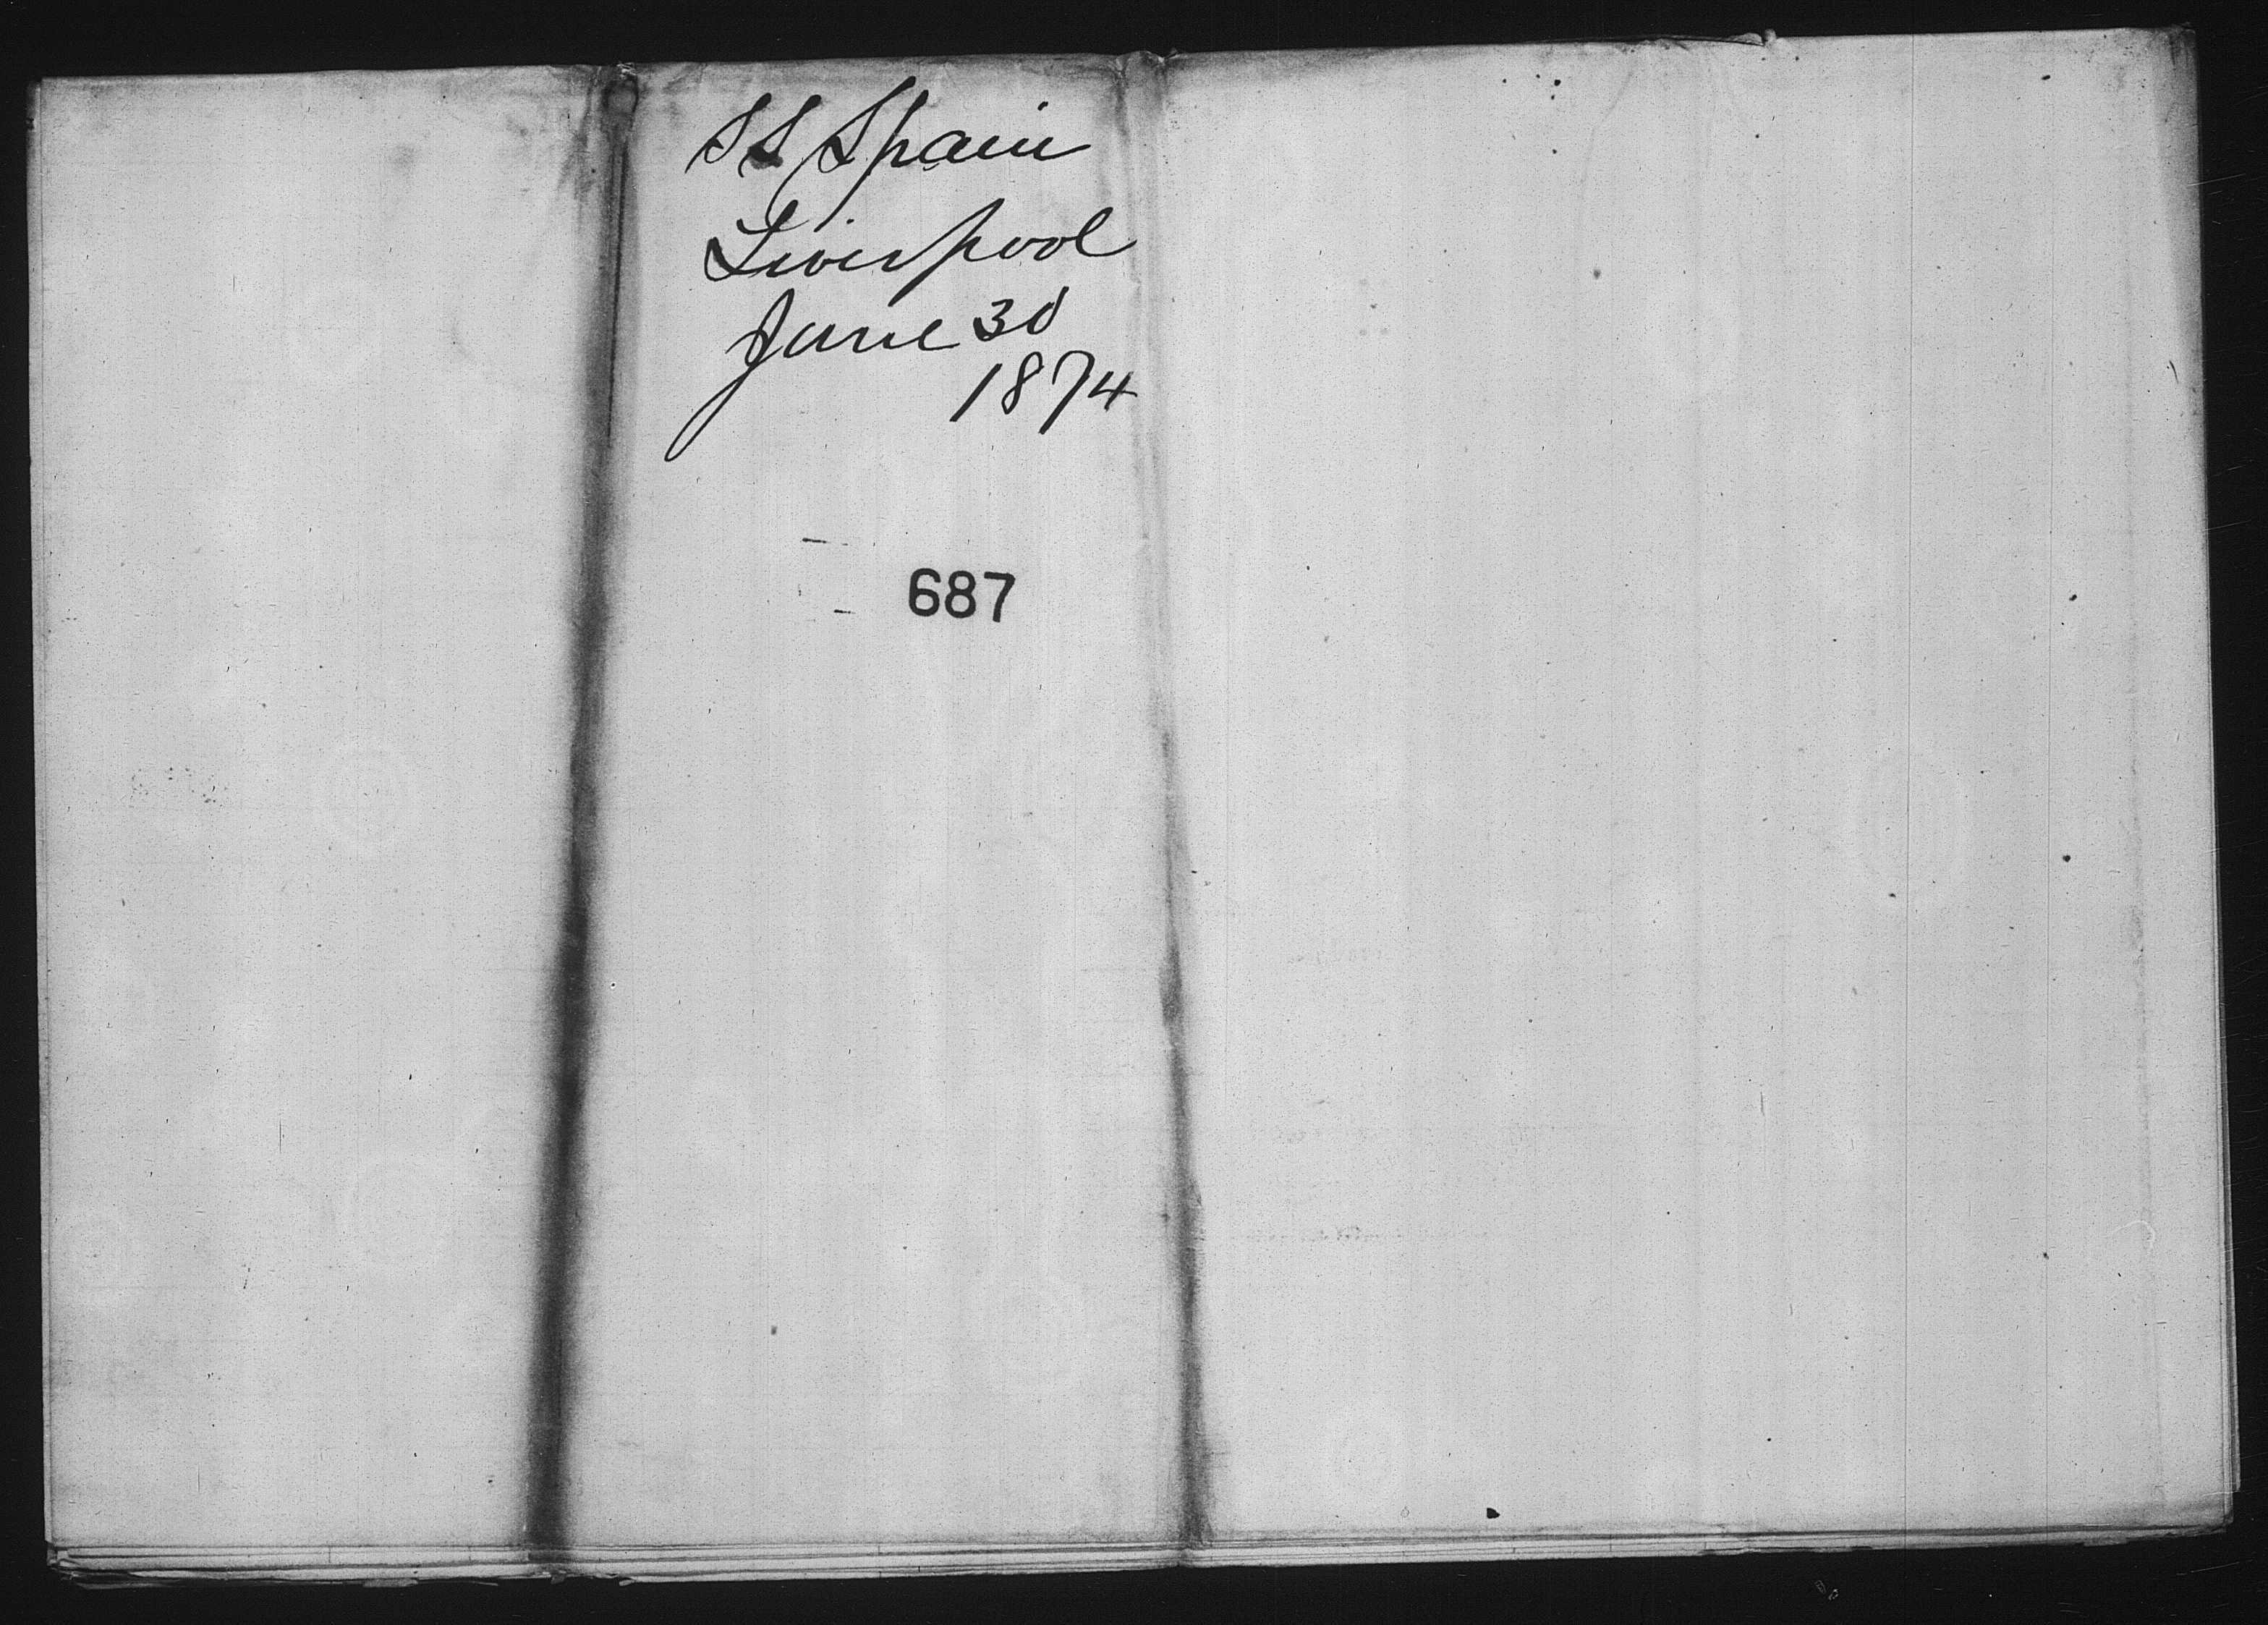 SS Spain
Liverpool
June 30
1874
687